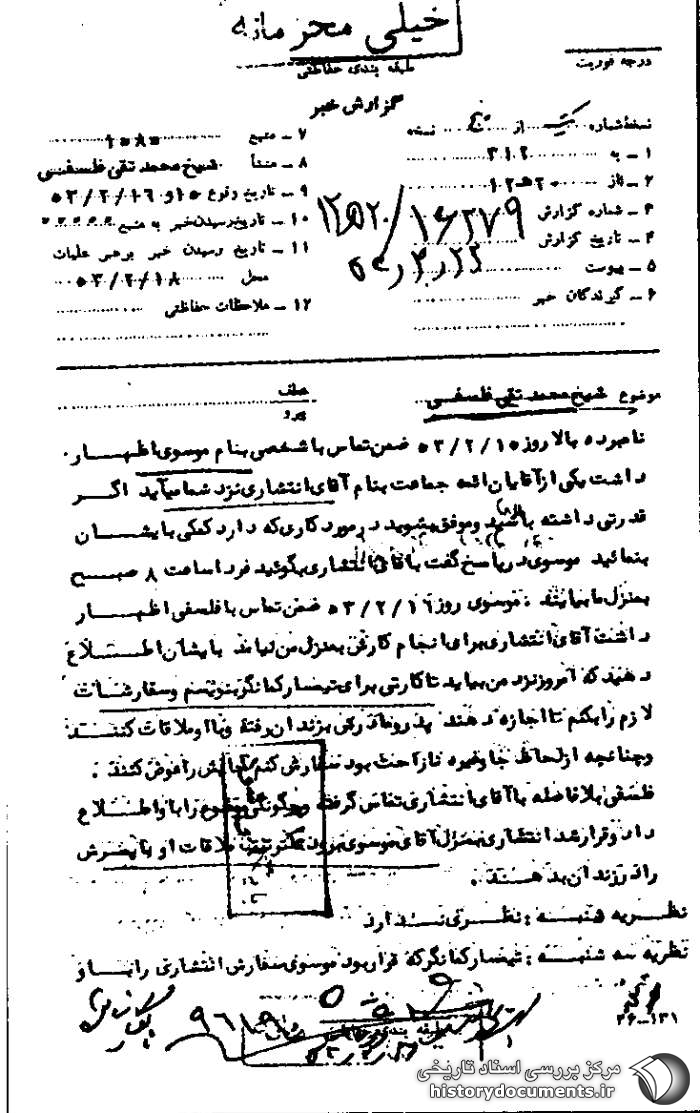 خیلی محرمانه
طبقه بندی حفاظتی
درجه فوریت
گزارش خبر
نسخه شماره از نسخه
۱ – به ۳۱۲
۲ – از ۲۰ ه ۱۲
۳ – شماره گزارش ۱۶۲۷۹ / ۱۲ ه ۲۰
۴ – تاریخ گزارش
۵ – پیوست
۶ – گیرندگان خبر
۷ – منبع
۸ – منشأ شیخ محمد تقی فلسفی
۹ – تاریخ وقوع ۱۵ و ۵۳/۲/۱۶
۱۰ – تاریخ رسیدن خبر به منبع
۱۱ – تاریخ رسیدن خبر برهبر عملیات
محل ۵۳/۲/۱۸
۱۲ – ملاحظات حفاظتی
موضوع شیخ محمد تقی فلسفی
عطف
پیرو
نامبرده بالا روز ۵۳/۲/۱۵ ضمن تماس با شخصی بنام موسوی اظهار
داشت یکی از آقایان ائمه جماعت بنام آقای انتشاری نزد شما میآید اگر
قدرتی داشته باشید و موفق بشوید در مورد کاری که دارد کمکی بایشان
بنمائید موسوی در پاسخ گفت بآقای انتشاری بگوئید فردا ساعت ۸ صبح
بمنزل ما بیایند . موسوی روز ۵۳/۲/۱۶ ضمن تماس با فلسفی اظهار
داشت آقای انتشاری برای انجام کارش بمنزل من نیامد بایشان اطلاع
دهید که امروز نزد من بیاید تا کارتی برای تیمسار کمانگر بنویسم و سفارشات
لازم را بکنم تا اجازه دهند پدر و مادرش بزندان رفته و با او ملاقات کنند
و چنانچه از لحاظ جا و غیره ناراحت بود سفارش کنم جایش را عوض کنند .
فلسفی بلافاصله با آقای انتشاری تماس گرفته و چگونگی موضوع را باو اطلاع
داد و قرار شد انتشاری بمنزل آقای موسوی برود ملاقات او با پسرش
را در زندان بدهند .
نظریه شنبه : نظری ندارد
نظریه سه شنبه : تیمسار کمانگر که قرار بود موسوی سفارش انتشاری را باو
طبقه بندی حفاظتی
۹۶۱۹
۳۶–۱۳۱
مرکز بررسی اسناد تاریخی
historydocuments.ir